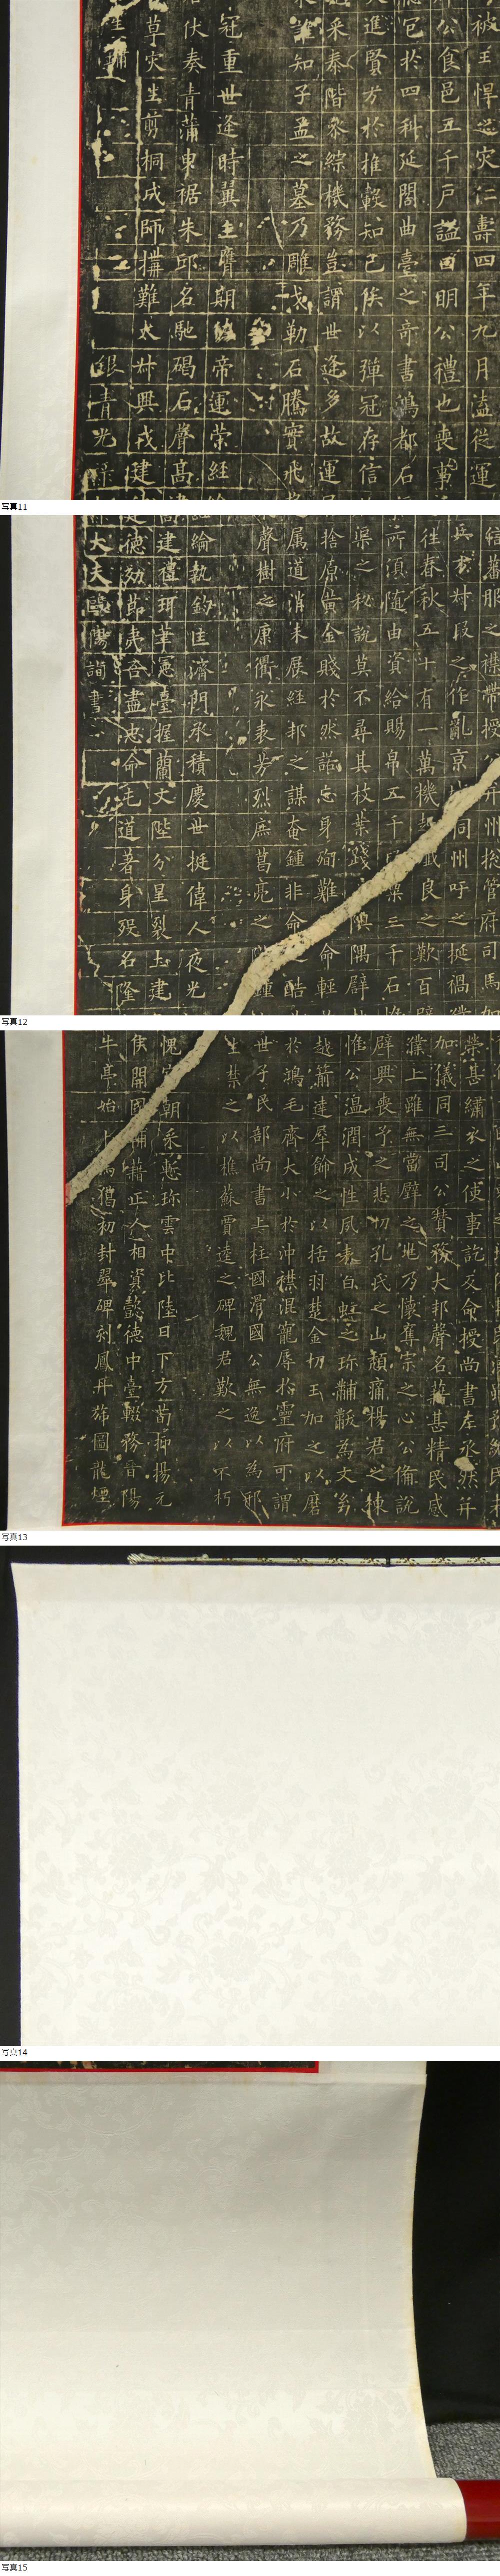 被主悍之災仁壽四年九月溘從運
公食邑五千戶謚曰明公禮也喪事
於四科延閣曲臺之奇書鴻都石
進賢方於推轂知己俟以彈冠存信
采泰階參綜機務豈謂世逢多故運
知子孟之墓乃雕戈勒石騰實飛
冠重世逢時翼主膺期佐帝運榮經
伏奏青蒲曳裾朱邸名馳碣石聲高
草災生剪桐成師搆難太叔興戎建
銀青光祿
写真11
服之襟帶授并州摠管府司馬加
叔段之作亂京同州吁之挻禍濮
往春秋五十有一萬機起良之歎百辟
所湏随由資給賜帛五千段粟三千石惟
渠之秘說莫不尋其枝葉踐隩隅譬
捨原黃金賤於然諾忘身殉難命輕
屬道消未展經邦之謀奄鍾非命之酷
聲樹之康衢永表芳烈庶葛亮之鍾
綸執鈞匡濟門承積慶世挺偉人夜光
建禮珥筆憲臺握蘭文陛分星裂土建
德効節夷吾盡忠命屯道著身殁名隆
大夫歐陽詢書
写真12
榮甚繡衣之使事訖反命授尚書左丞然并
加儀同三司公贊務大邦聲名藉甚精民感
濮上雖無當璧之兆乃懷奪宗之心公備說
辟興喪予之悲切孔氏之山頹痛楊君之棟
惟公温潤成性夙表白虹之珍黼黻為文幼
越箭達犀飾之以括羽楚金切玉加之以磨
於鴻毛齊大小於沖襟混寵辱於靈府可謂
世子民部尚書上柱國滑國公無逸以為邢
生禁之以樵蘇賈逵之碑魏君歎之以不朽
愧寶朝采慙珍雲中比陸日下方荀抑揚元
侯開國輔藉正人相資懿德中臺輟務晉陽
牛亭始卜馬獵初封翠碑刻鳳丹旐圖龍煙
写真13
写真14
写真15